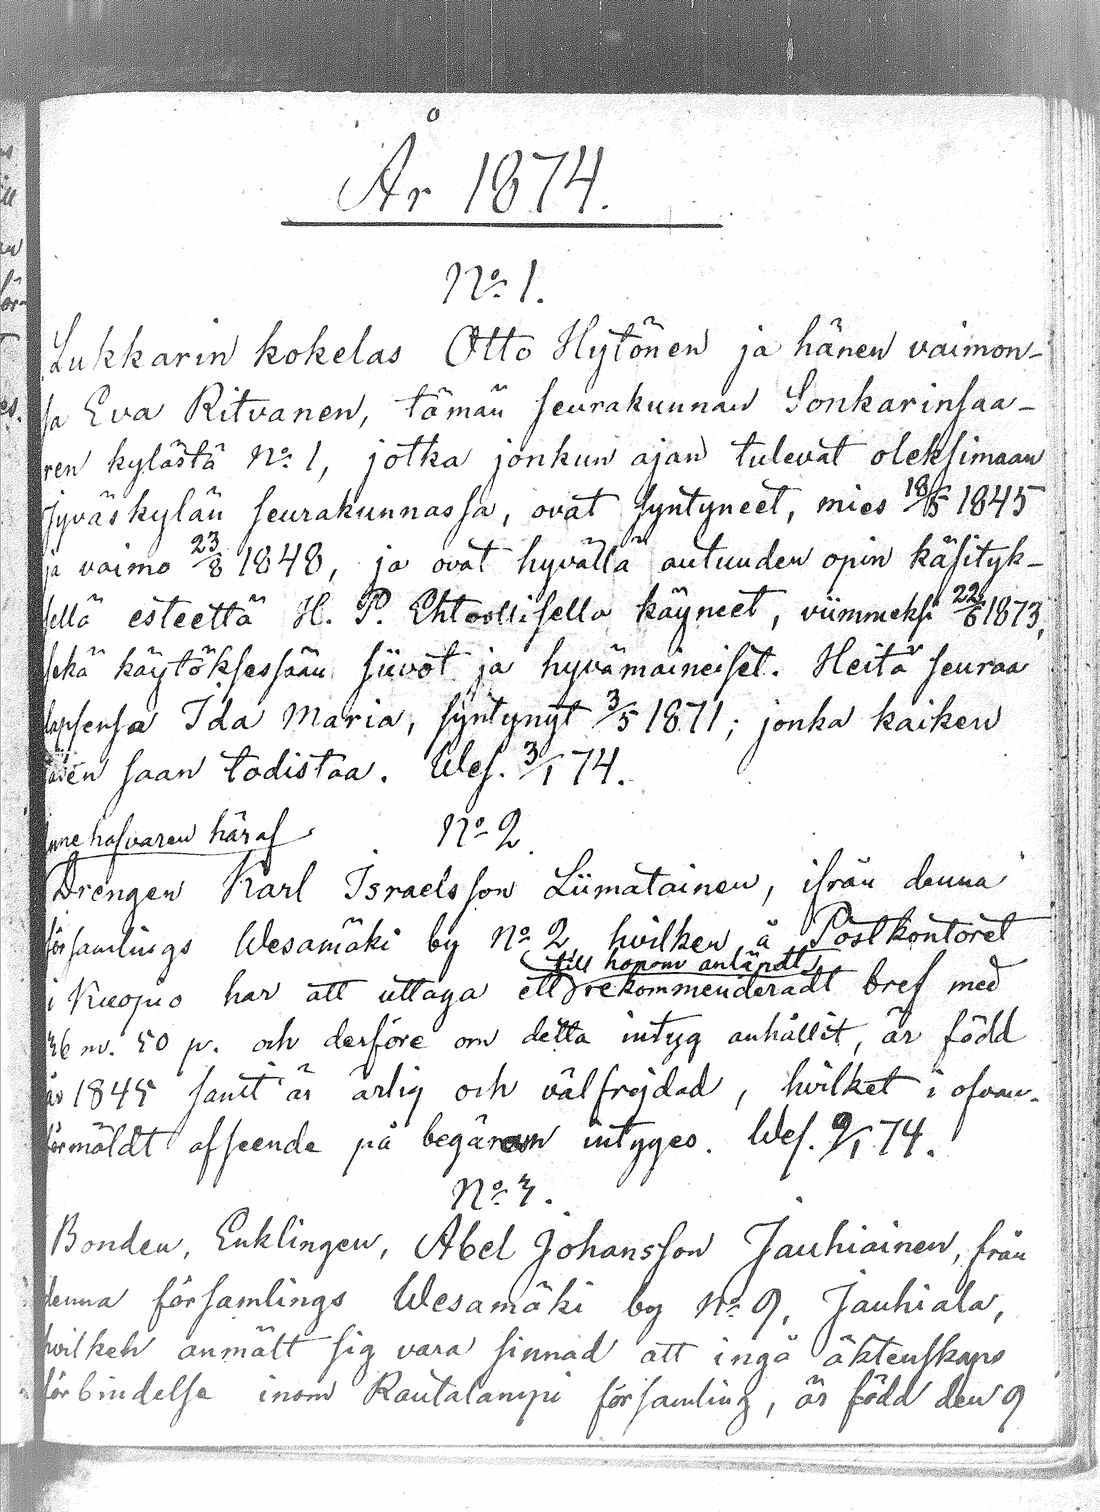 År 1874.
No 1.
Lukkarin kokelas Otto Hytönen ja hänen vaimon-
sa Eva Ritvanen, tämän seurakunnan Sonkarinsaa-
ren kylästä No 1, jotka jonkun ajan tulevat oleksimaan
Jyväskylän seurakunnassa, ovat syntyneet, mies 18/5 1845
ja vaimo 23/8 1848, ja ovat hyvällä autuuden opin käsityk-
sellä esteettä H. P. Ehtoollisella käyneet, viimmeksi 22/6 1873,
sekä käytöksessään siivot ja hyvämaineiset. Heitä seuraa
lapsensa Ida Maria, syntynyt 3/5 1871; jonka kaiken
saan todistaa. Wes. 3/1 74.
Innehafvaren häraf
No 2
Drengen Karl Israelsson Liimatainen, ifrån denna
församlings Wesamäki by No 2, hvilken å Postkontoret
till honom anländt
i Kuopio har att uttaga ett rekommenderadt bref med
36 m. 50 p. och derföre om detta intyg anhållit, är född
år 1845 samt är ärlig och välfrejdad, hvilket i ofvan-
förmäldt afseende på begäran intyges. Wes. 9/1 74.
No 3.
Bonden, Enklingen, Abel Johansson Jauhiainen, från
denna församlings Wesamäki by No 9, Jauhiala,
hvilken anmält sig vara sinnad att ingå äktenskaps
förbindelse inom Rautalampi församling, är född den 9